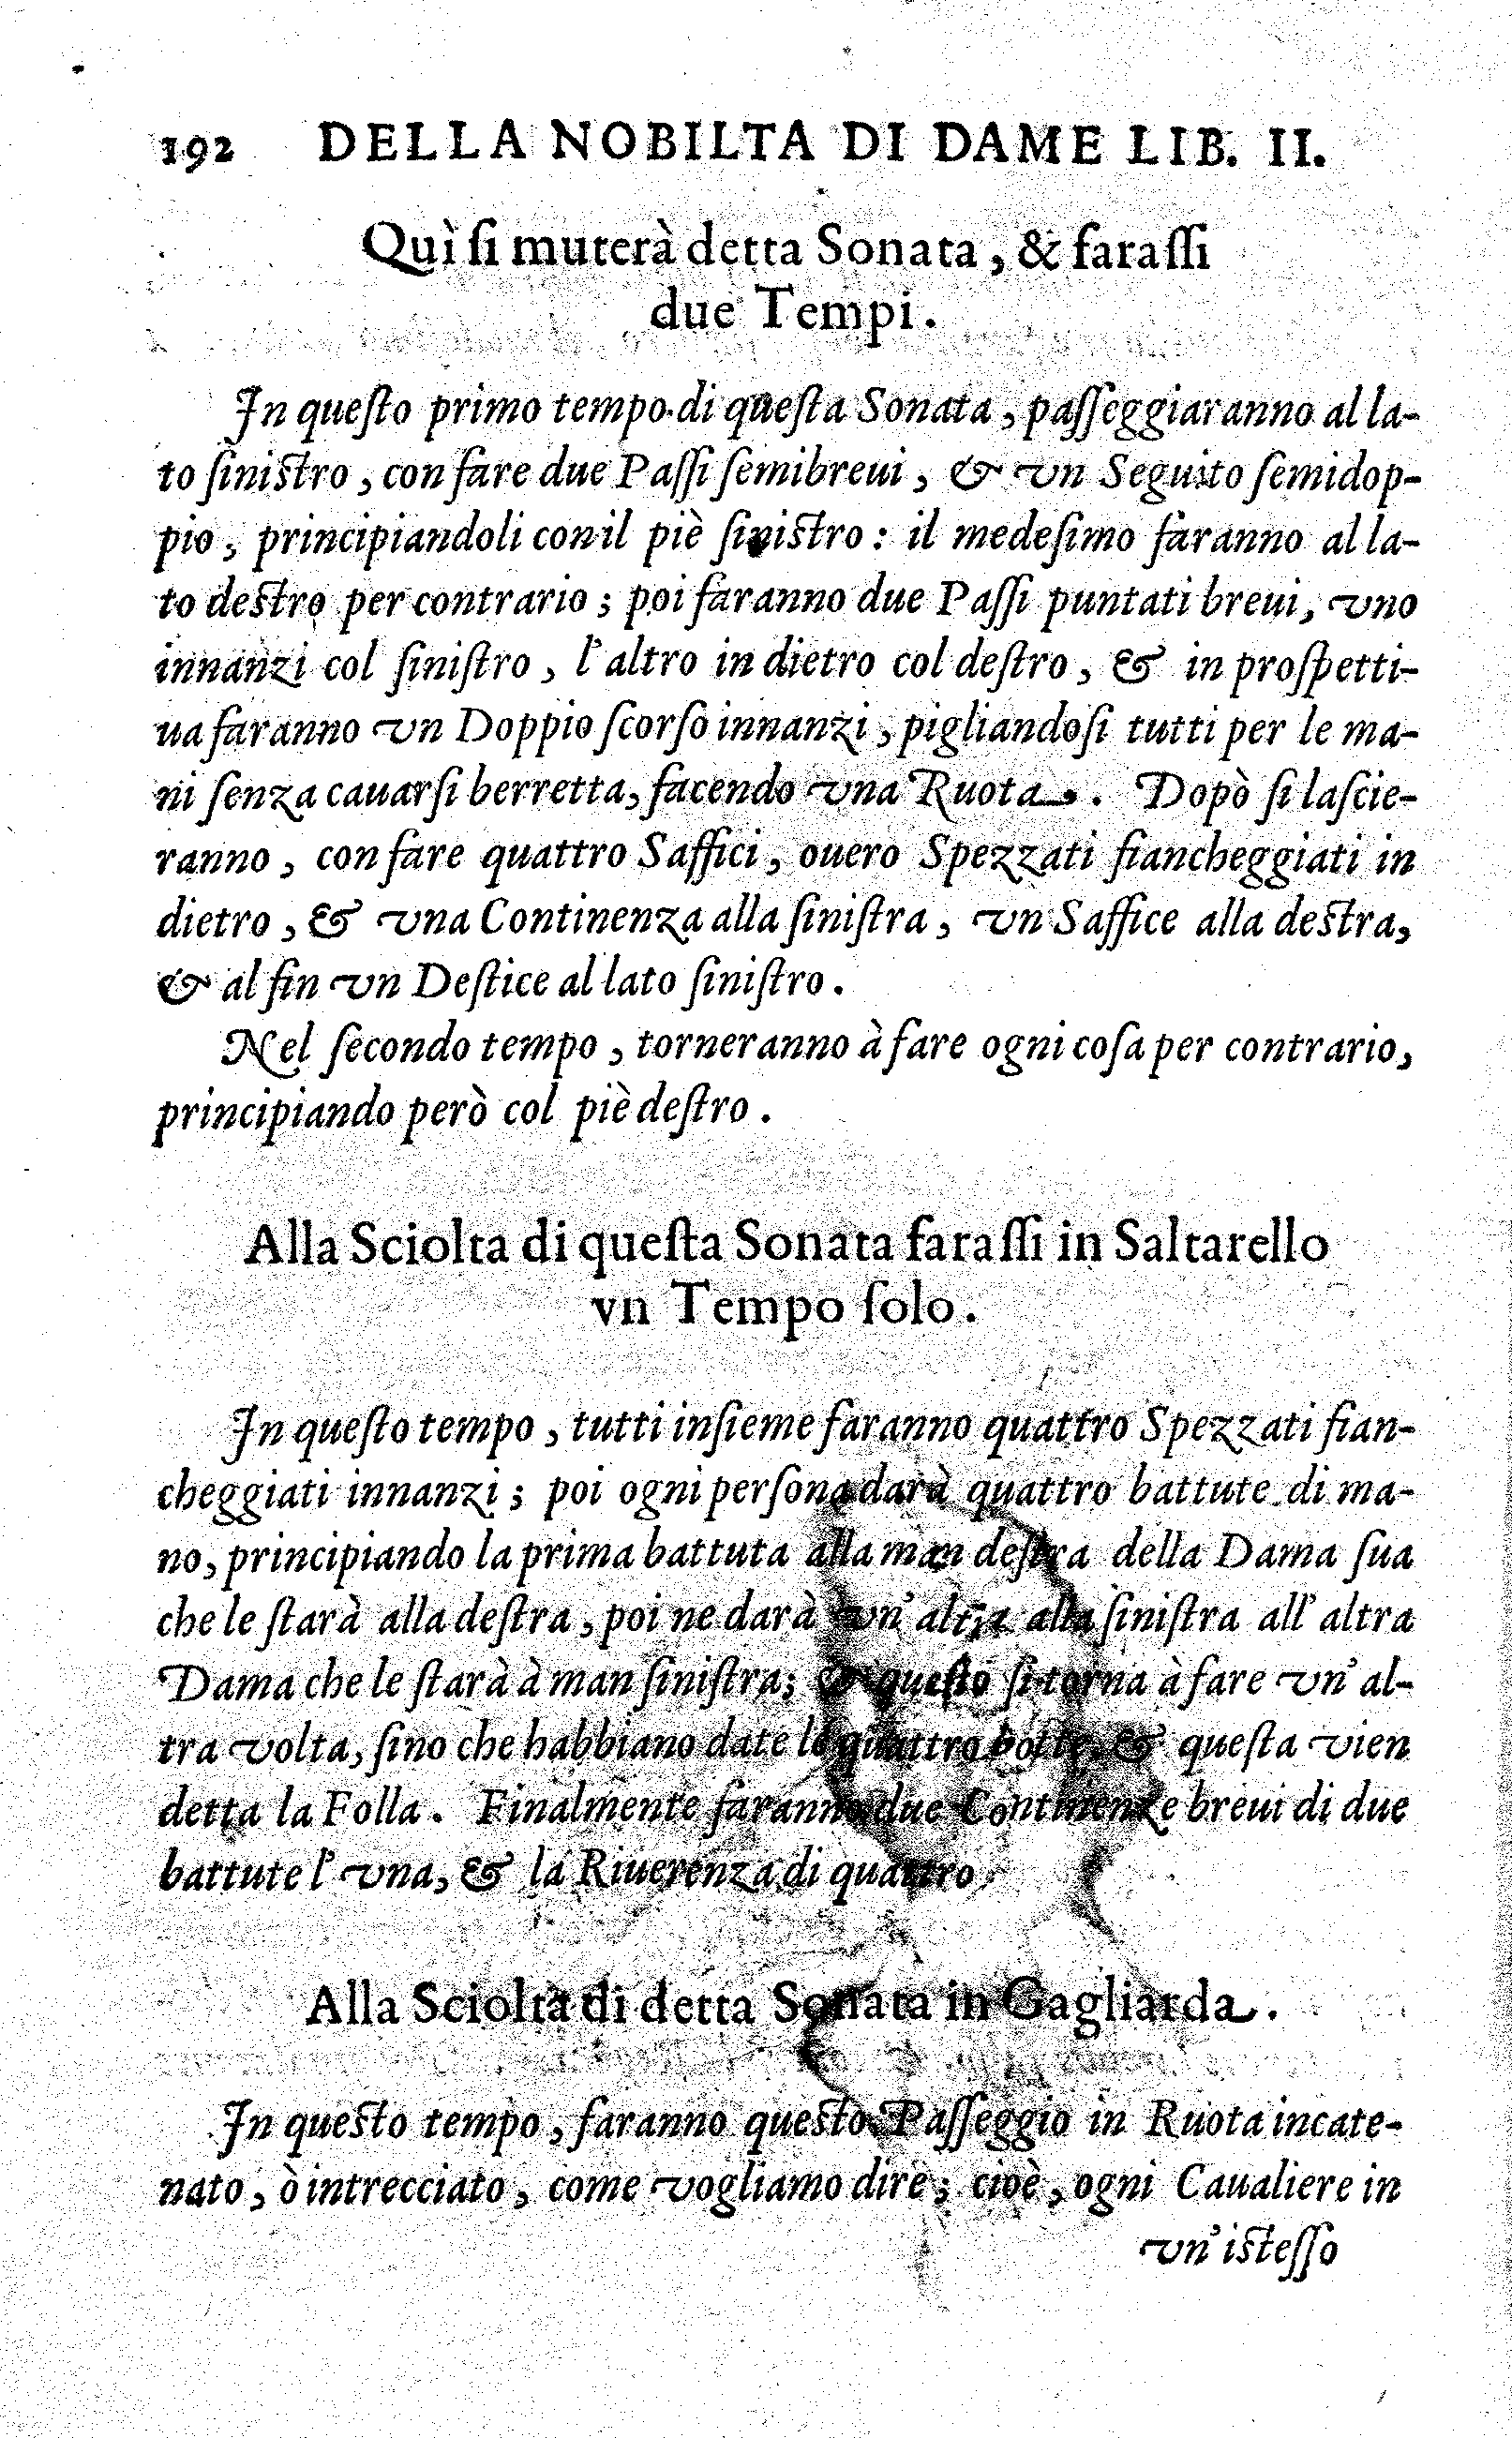 192 DELLA NOBILTA DI DAME LIB. II.
Quì ſi muterà detta Sonata, & faraſſi
due Tempi.
In queſto primo tempo di queſta Sonata, paſſeggiaranno al la-
to ſiniſtro, con fare due Paſſi ſemibreui, & vn Seguito ſemidop-
pio, principiandoli con il piè ſiniſtro: il medeſimo faranno al la-
to deſtro per contrario; poi faranno due Paſſi puntati breui, vno
innanzi col ſiniſtro, l'altro in dietro col deſtro, & in proſpetti-
ua faranno vn Doppio ſcorſo innanzi, pigliandoſi tutti per le ma-
ni ſenza cauarſi berretta, facendo vna Ruota. Dopò ſi laſcie-
ranno, con fare quattro Saffici, ouero Spezzati fiancheggiati in
dietro, & vna Continenza alla ſiniſtra, vn Saffice alla deſtra,
& al fin vn Deſtice al lato ſiniſtro.
Nel ſecondo tempo, torneranno à fare ogni coſa per contrario,
principiando però col piè deſtro.
Alla Sciolta di queſta Sonata faraſſi in Saltarello
vn Tempo ſolo.
In queſto tempo, tutti inſieme faranno quattro Spezzati fian-
cheggiati innanzi; poi ogni perſona darà quattro battute di ma-
no, principiando la prima battuta alla man deſtra della Dama ſua
che le ſtarà alla deſtra, poi ne darà vn'altra alla ſiniſtra all'altra
Dama che le ſtarà à man ſiniſtra; & queſto ſi torna à fare vn'al-
tra volta, ſino che habbiano date le quattro botte, & queſta vien
detta la Folla. Finalmente faranno due Continenze breui di due
battute l'vna, & la Riuerenza di quattro.
Alla Sciolta di detta Sonata in Gagliarda.
In queſto tempo, faranno queſto Paſſeggio in Ruota incate-
nato, ò intrecciato, come vogliamo dire; cioè, ogni Caualiere in
vn'iſteſſo